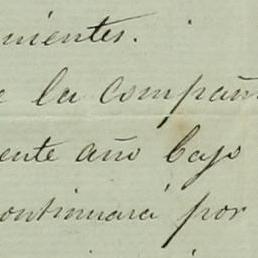 nientes.
e la compañ
ente año bajo
ontinuará por